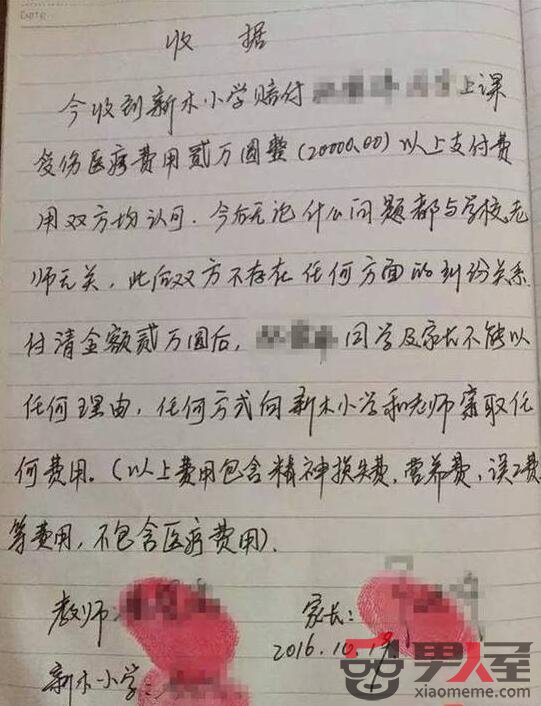 Date
收 据
今收到新木小学赔付 上课
受伤医疗费用贰万圆整(20000.00)以上支付费
用双方均认可.今后无论什么问题都与学校老
师无关,此后双方不存在任何方面的纠纷关系.
付清金额贰万圆后, 同学及家长不能以
任何理由,任何方式向新木小学和老师索取任
何费用.(以上费用包含精神损失费,营养费,误工费
等费用,不包含医疗费用).
教师: 家长:
2016.10.19
新木小学:
男人屋
xiaomeme.com